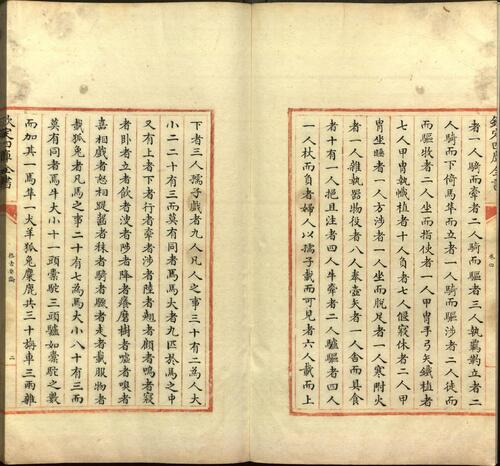 欽定四庫全書
者一人騎而牽者二人騎而驅者三人執羈靮立者二
人騎而下倚馬臂隼而立者一人騎而驅涉者二人徒
而驅牧者二人坐而指使者一人甲冑手弓矢植者
七人甲冑執幟植者十人負者七人偃寢休者二人甲
冑坐睡者一人方涉者一人坐而脫足者一人寒附火
者一人雜執器物役者八人奉壺矢者一人舍而具食
者十有一人挹且注者四人牛牽者二人驢驅者四人
一人杖而負者婦人以孺子載而可見者六人載而上
下者三人孺子戲者九人凡人之事三十有二為人大
小百二十有三而莫有同者焉馬大者九匹於馬之中
又有上者下者行者牽者涉者陸者翹者顧者鳴者寢
者臥者立者飲者溲者陟者降者癢磨樹者噓者嗅者
喜相戲者怒相踶齧者秣者騎者驟者走者載服物者
載狐兔者凡馬之事二十有七為馬大小八十有三而
莫有同者焉牛大小十一頭橐駝三頭驢如橐駝之數
而加其一焉隼一犬羊狐兔麋鹿共三十旃車三兩雜
二
欽定四庫全書